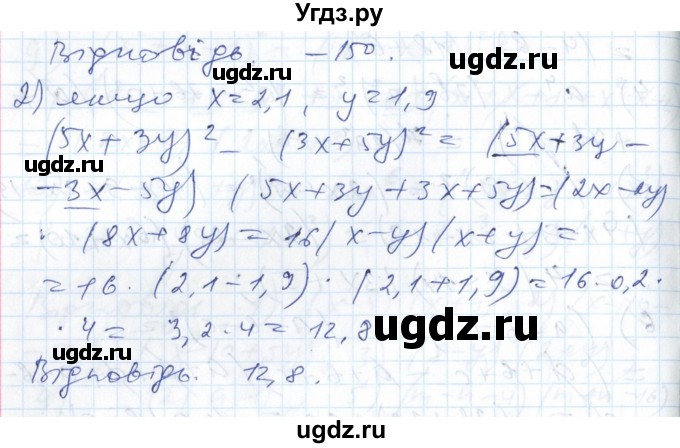 Угдз.ру
Відповідь −150.
2) якщо x=2,1, y=1,9
(5x+3y)² − (3x+5y)² = (5x+3y−
−3x−5y) (5x+3y+3x+5y)=(2x−2y)
· (8x+8y)=16(x−y)(x+y)=
=16·(2,1−1,9)·(2,1+1,9)=16·0,2·
·4= 3,2·4=12,8
Відповідь. 12,8.
ugdz.ru
ugdz.ru
ugdz.ru
ugdz.ru
ugdz.ru
ugdz.ru
ugdz.ru
ugdz.ru
ugdz.ru